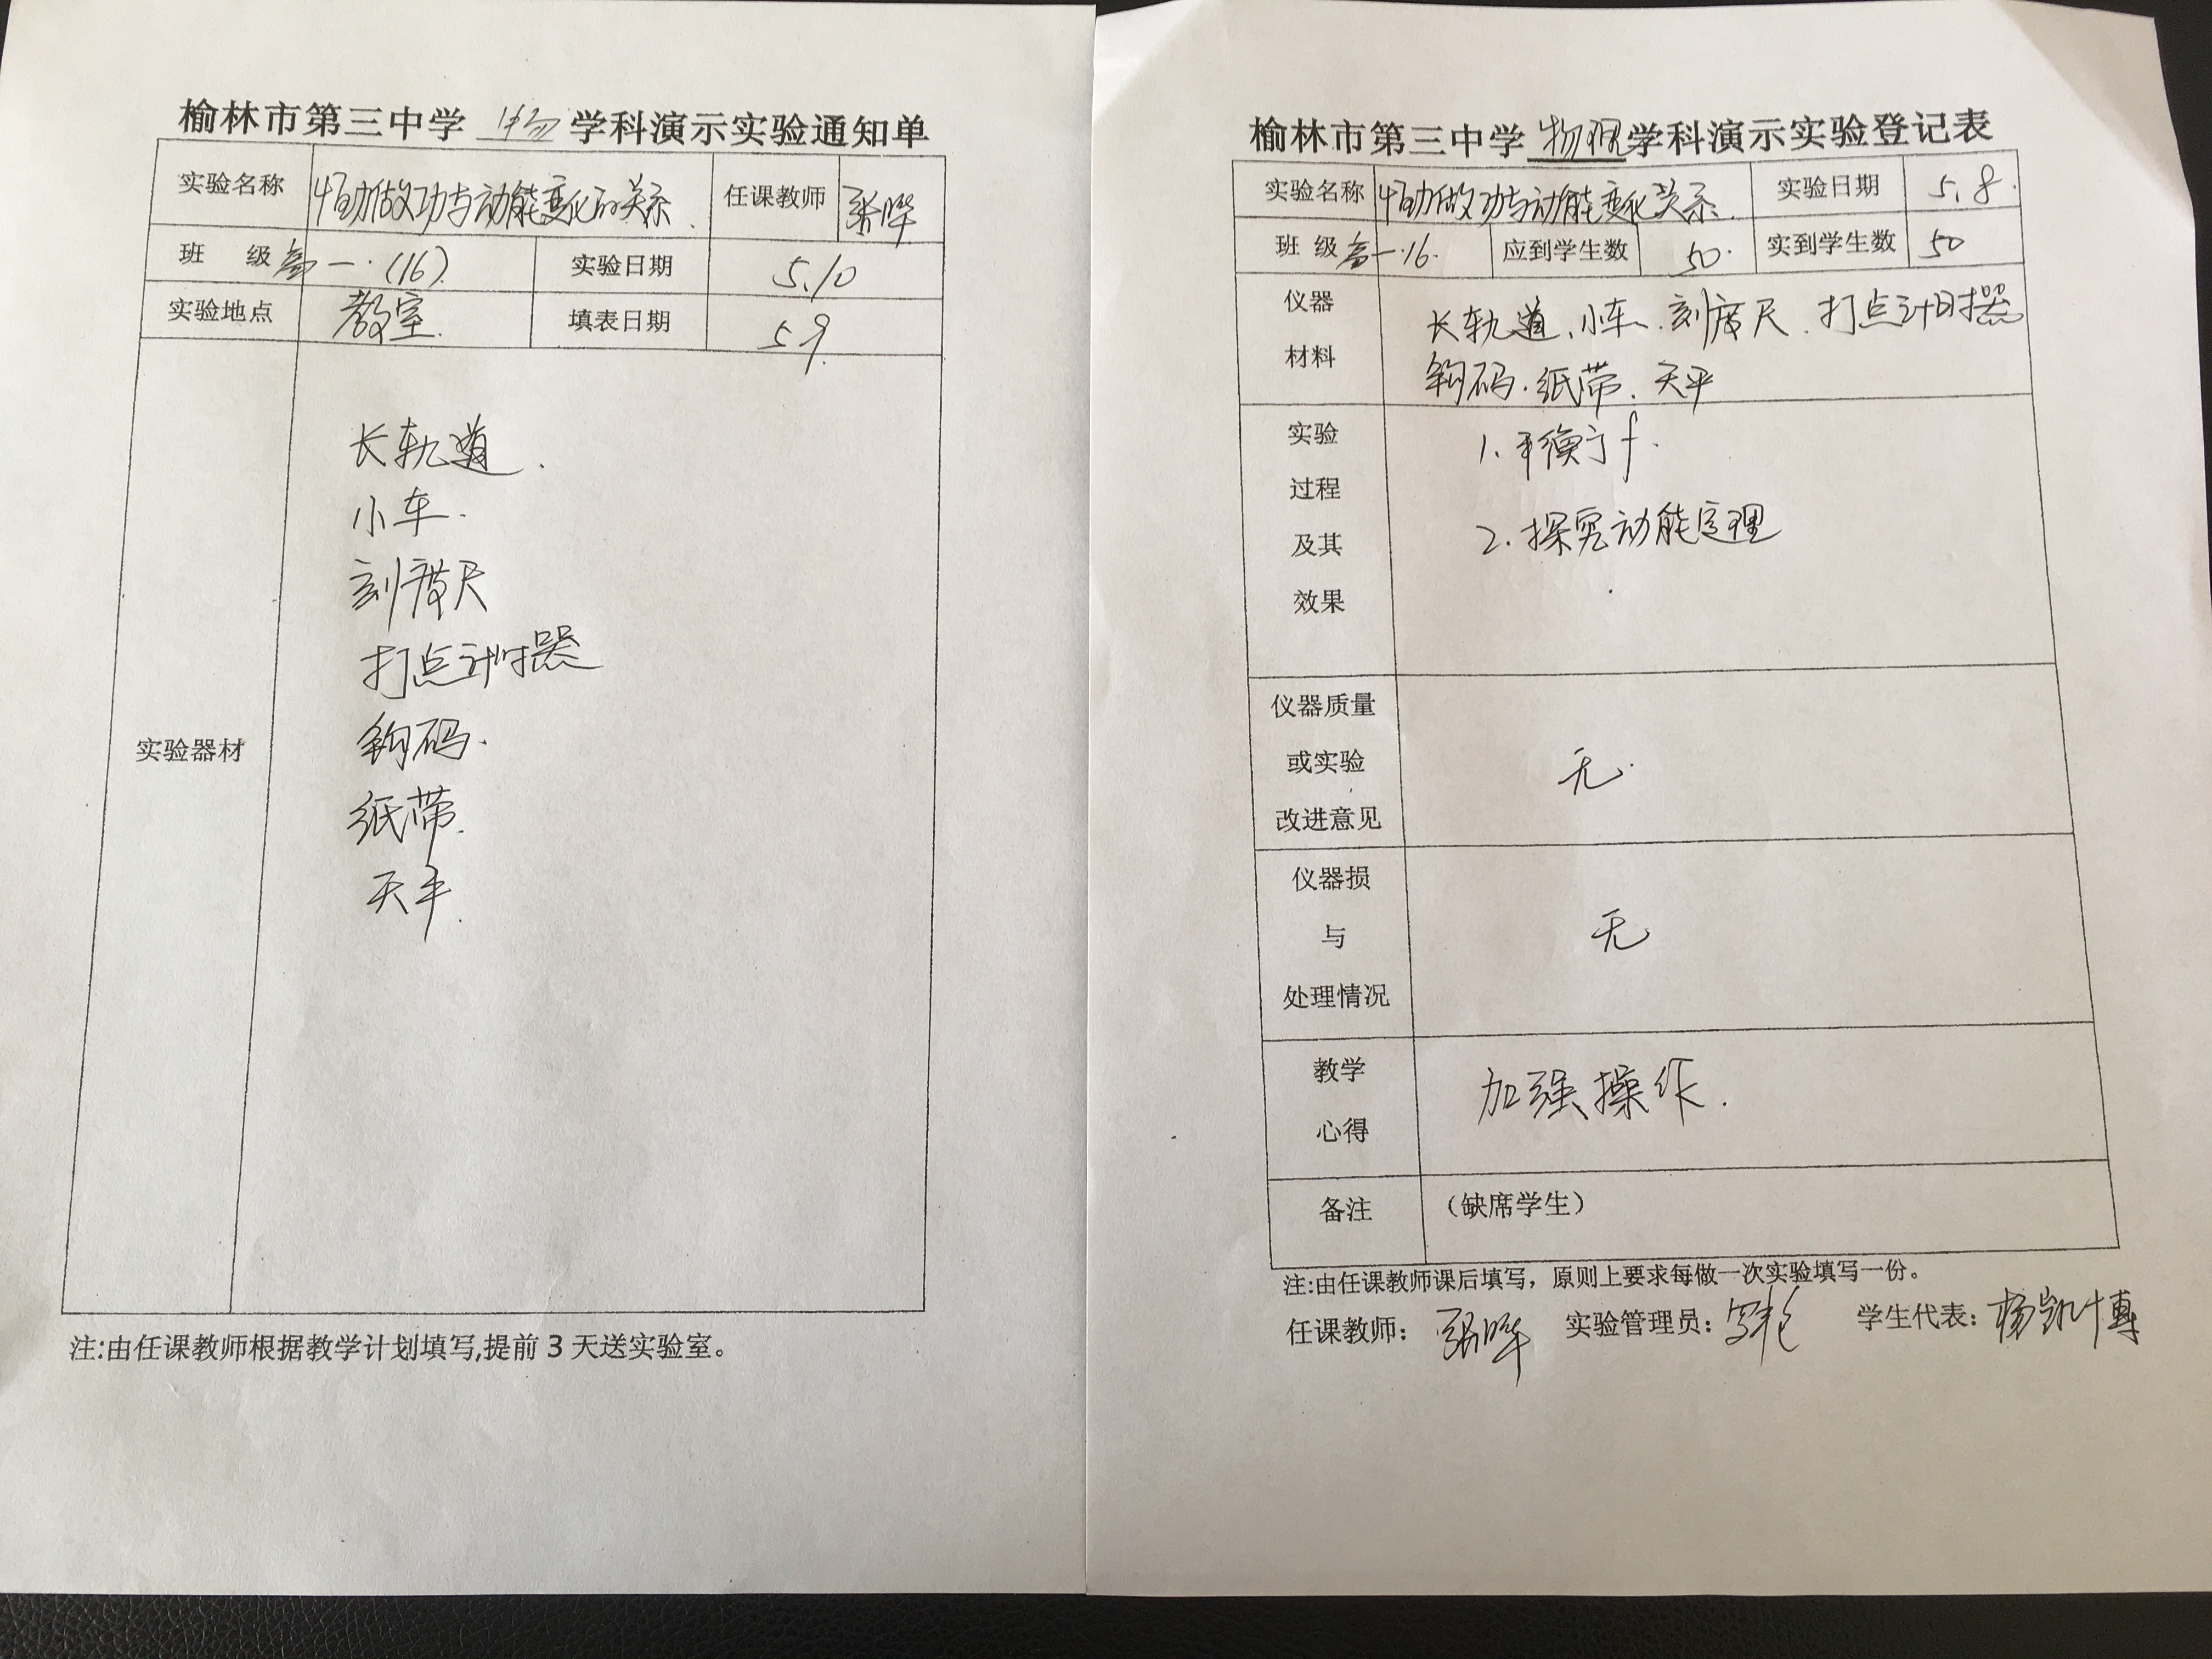 榆林市第三中学 物 学科演示实验通知单
实验名称 恒力做功与动能变化的关系. 任课教师 张晔
班 级 高一.(16) 实验日期 5.10
实验地点 教室. 填表日期 5.9.
实验器材
长轨道.
小车.
刻度尺
打点计时器
钩码.
纸带.
天平.
注:由任课教师根据教学计划填写,提前3天送实验室。
榆林市第三中学 物理 学科演示实验登记表
实验名称 做功与动能变化关系. 实验日期 5.8.
班 级 高一.16. 应到学生数 50. 实到学生数 50
仪器
材料
长轨道、小车、刻度尺、打点计时器
钩码.纸带.天平
实验
过程
及其
效果
1.平衡 f.
2.探究动能定理
仪器质量
或实验
改进意见
无.
仪器损
与
处理情况
无
教学
心得
加强操作.
备注 （缺席学生）
注:由任课教师课后填写，原则上要求每做一次实验填写一份。
任课教师：张晔 实验管理员： 学生代表：杨凯博